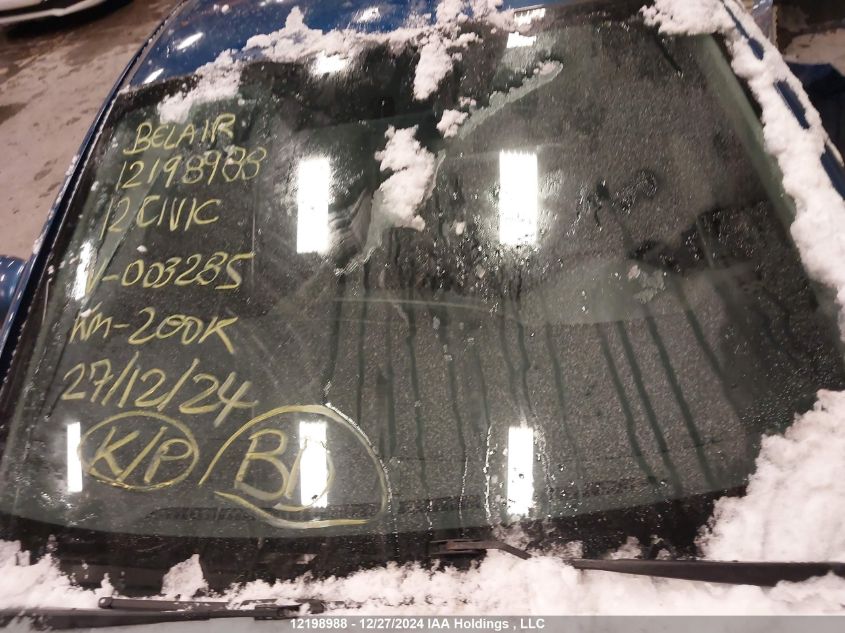 BELAIR
12198988
12 CIVIC
V-003285
Km-200K
27/12/24
K/P BD
12198988 - 12/27/2024 IAA Holdings , LLC